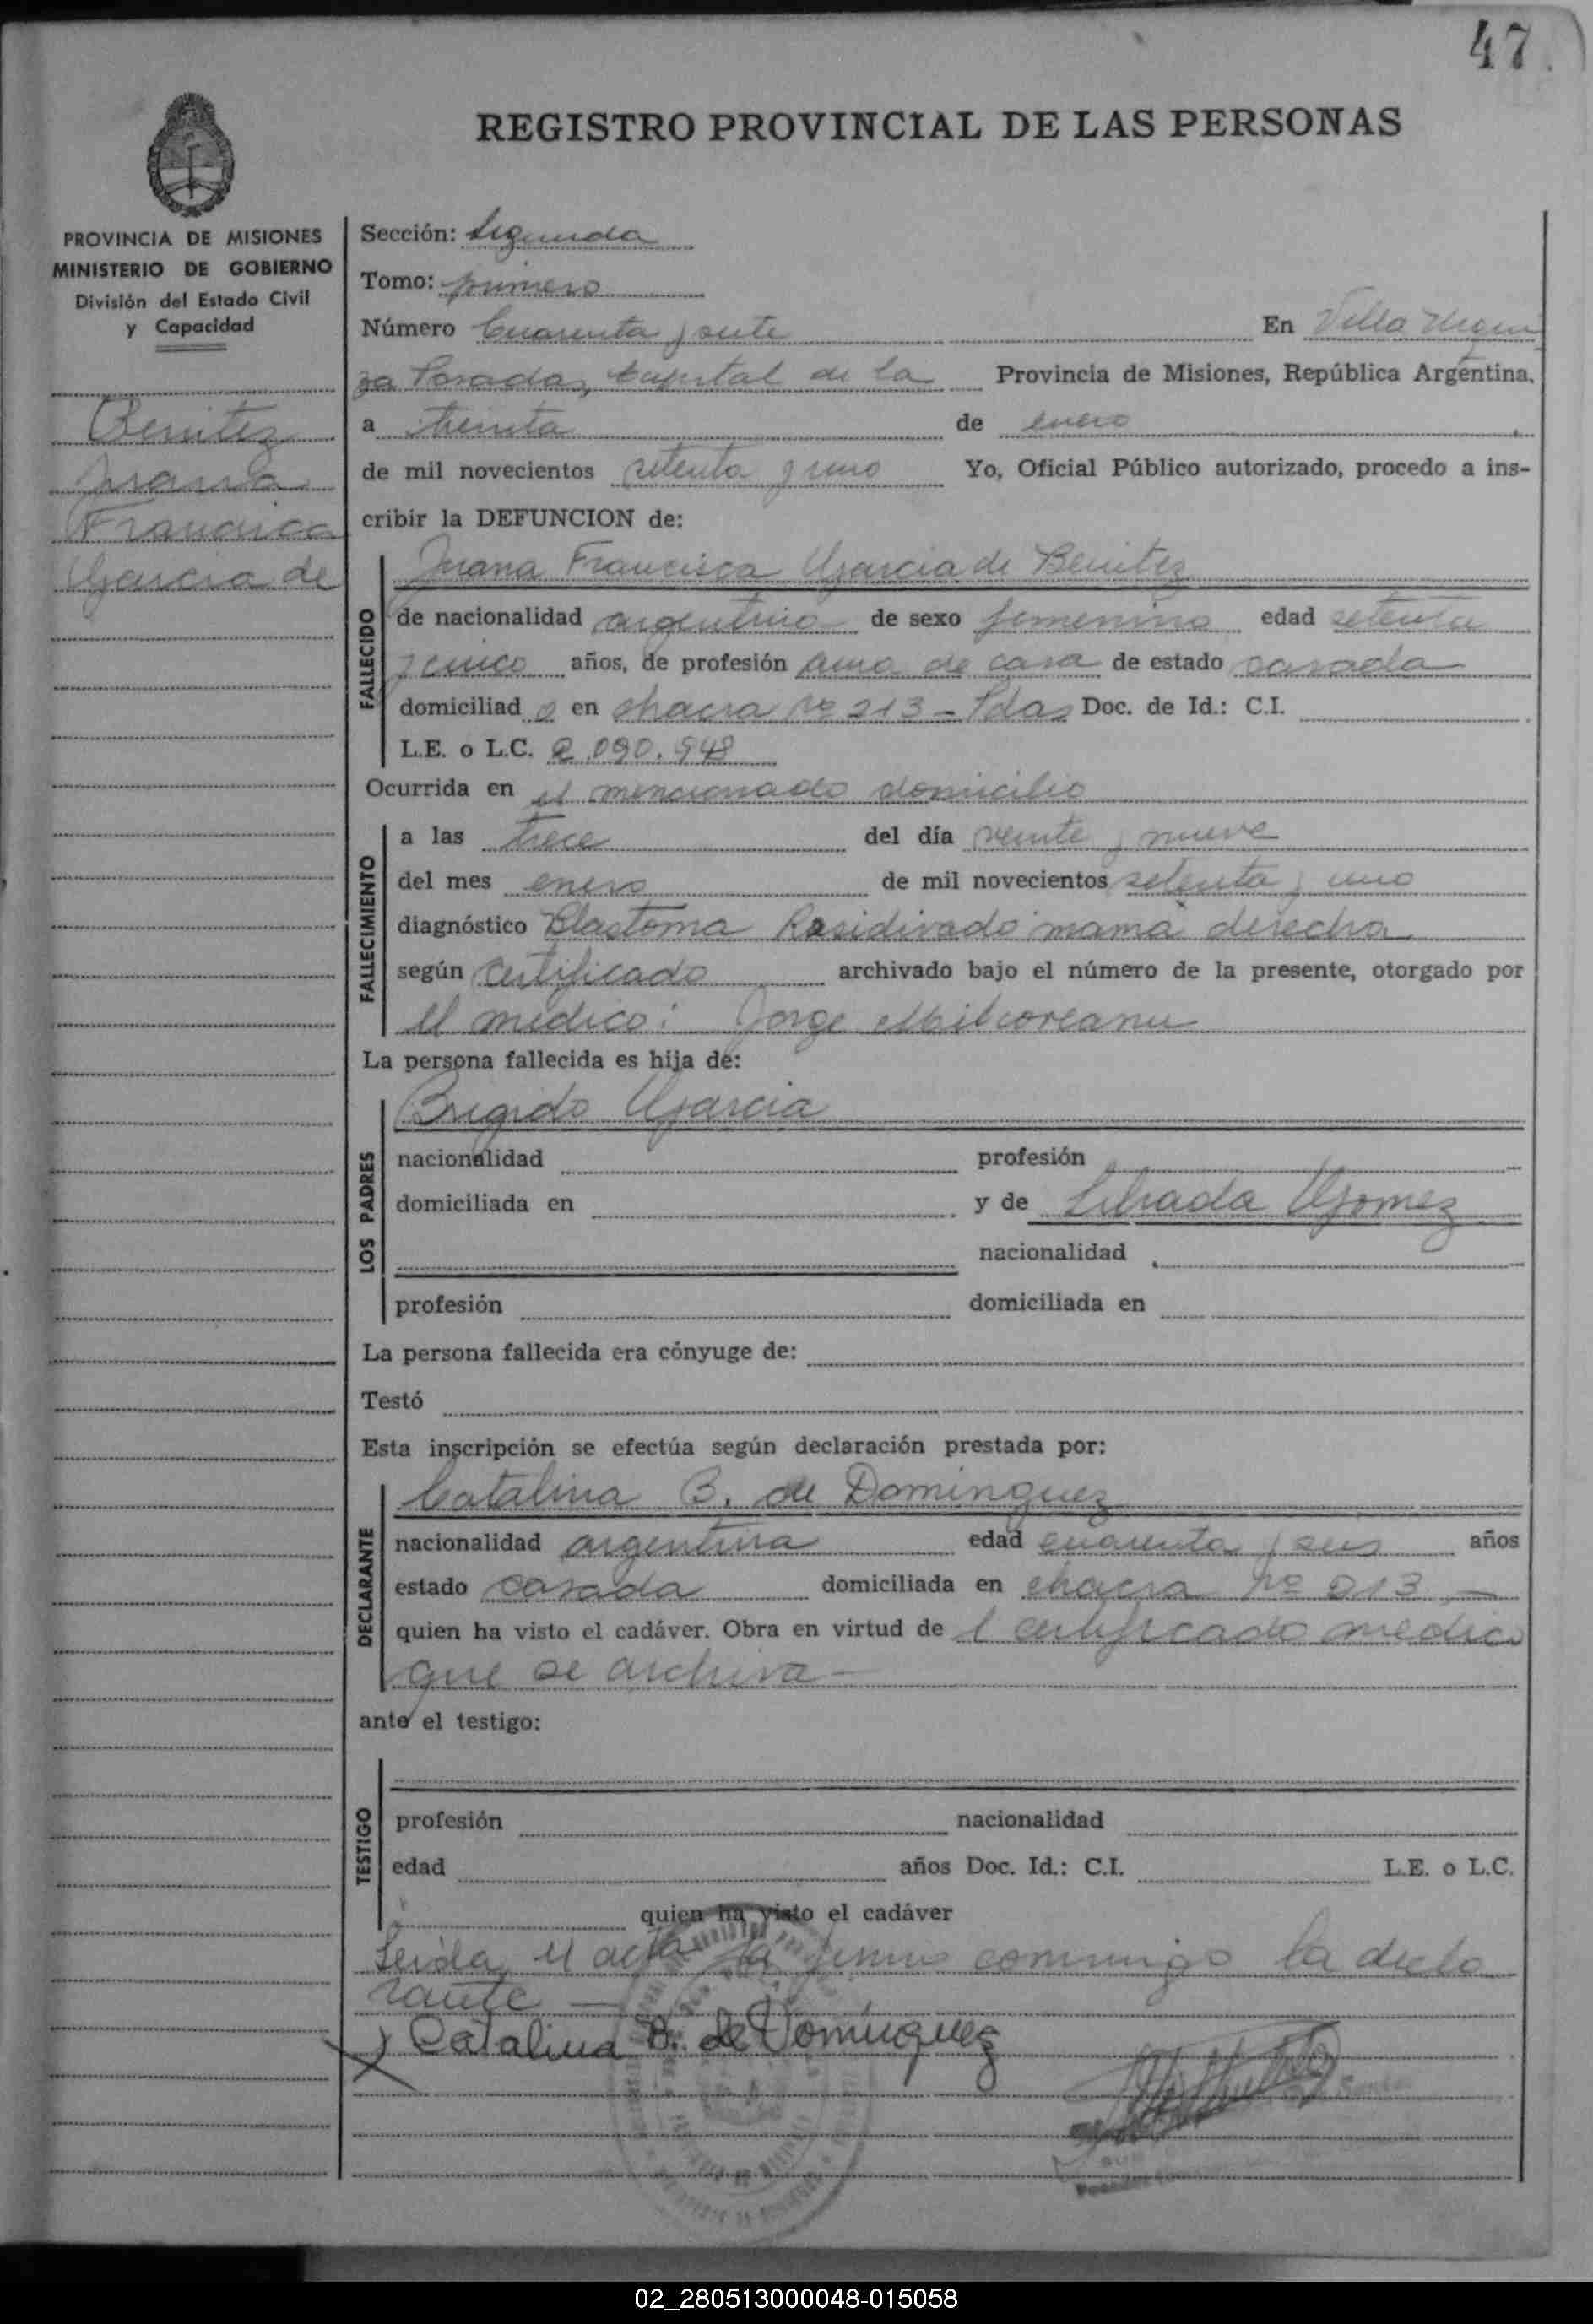 47
REGISTRO PROVINCIAL DE LAS PERSONAS
PROVINCIA DE MISIONES
MINISTERIO DE GOBIERNO
División del Estado Civil
y Capacidad
Benitez
Juana
Francisca
Garcia de
Sección: Segunda
Tomo: primero
Número Cuarenta y siete En Villa Urqui
za Posadas, Capital de la Provincia de Misiones, República Argentina.
a treinta de enero
de mil novecientos setenta y uno Yo, Oficial Público autorizado, procedo a ins-
cribir la DEFUNCION de:
FALLECIDO
Juana Francisca Garcia de Benitez
de nacionalidad argentina de sexo femenino edad setenta
y cinco años, de profesión ama de casa de estado casada
domiciliad a en chacra Nº 213 - Pdas Doc. de Id.: C.I.
L.E. o L.C. 2.090.948
Ocurrida en el mencionado domicilio
FALLECIMIENTO
a las trece del día veinte y nueve
del mes enero de mil novecientos setenta y uno
diagnóstico Blastoma Rasidivado mama derecha
según certificado archivado bajo el número de la presente, otorgado por
el médico: Jorge
La persona fallecida es hija de:
LOS PADRES
Brigido Garcia
nacionalidad profesión
domiciliada en y de Librada Gomez
nacionalidad
profesión domiciliada en
La persona fallecida era cónyuge de:
Testó
Esta inscripción se efectúa según declaración prestada por:
DECLARANTE
Catalina B. de Dominguez
nacionalidad argentina edad cuarenta y seis años
estado casada domiciliada en chacra Nº 213 -
quien ha visto el cadáver. Obra en virtud de l certificado medico
que se archiva -
ante el testigo:
TESTIGO
profesión nacionalidad
edad años Doc. Id.: C.I. L.E. o L.C.
quien ha visto el cadáver
Leida el acta la firma conmigo la decla
rante -
x Catalina B. de Dominguez
02_280513000048-015058